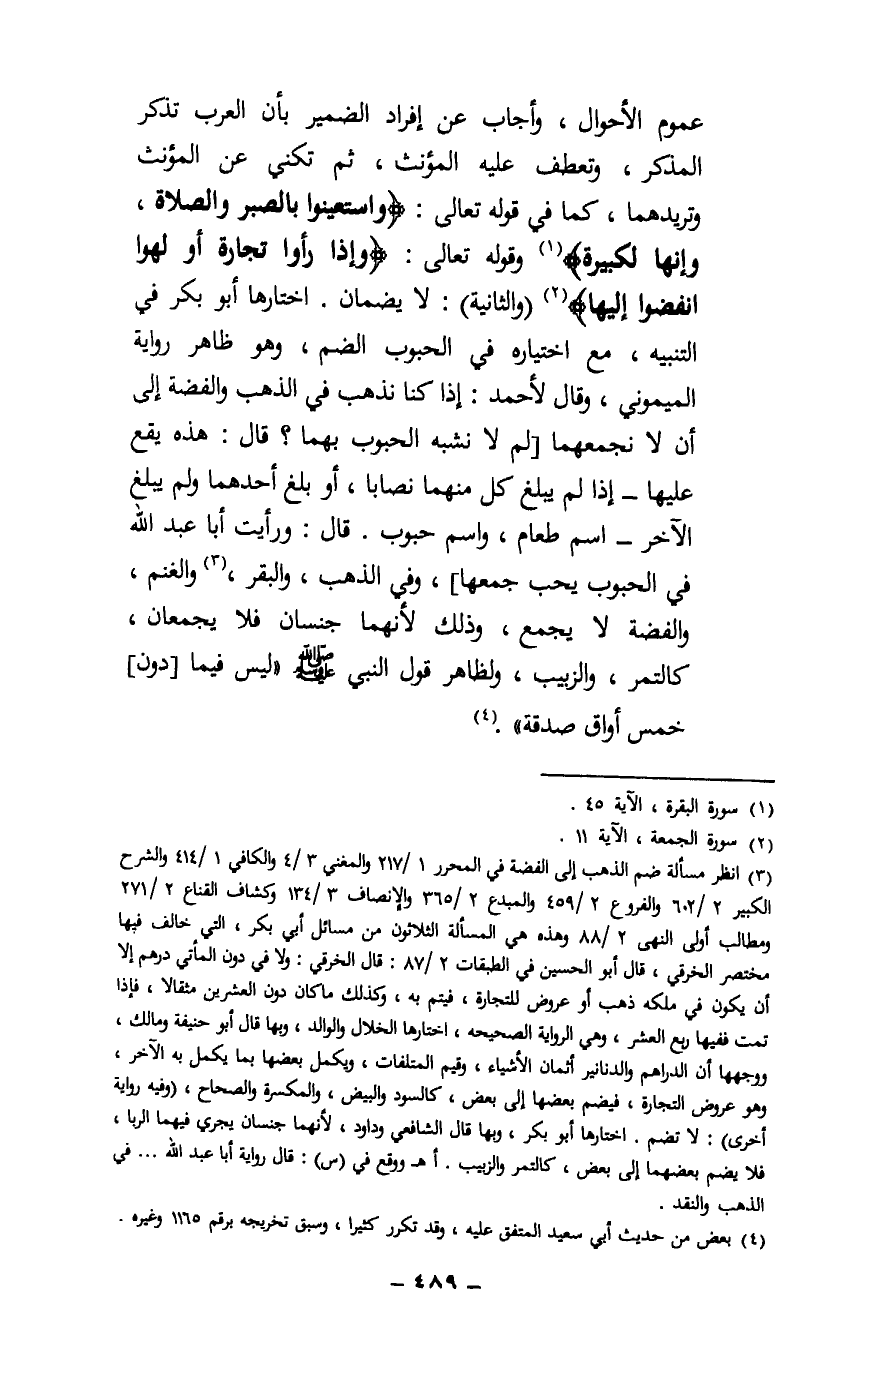 عموم الأحوال ، وأجاب عن إفراد الضمير بأن العرب تذكر
المذكر ، وتعطف عليه المؤنث ، ثم تكني عن المؤنث
وتريدهما ، كما في قوله تعالى : ﴿واستعينوا بالصبر والصلاة ،
وإنها لكبيرة﴾(١) وقوله تعالى : ﴿وإذا رأوا تجارة أو لهوا
انفضوا إليها﴾(٢) (والثانية) : لا يضمان . اختارها أبو بكر في
التنبيه ، مع اختياره في الحبوب الضم ، وهو ظاهر رواية
الميموني ، وقال لأحمد : إذا كنا نذهب في الذهب والفضة إلى
أن لا نجمعهما [لم لا نشبه الحبوب بهما ؟ قال : هذه يقع
عليها – إذا لم يبلغ كل منهما نصابا ، أو بلغ أحدهما ولم يبلغ
الآخر – اسم طعام ، واسم حبوب . قال : ورأيت أبا عبد الله
في الحبوب يحب جمعها] ، وفي الذهب ، والبقر ،(٣) والغنم ،
والفضة لا يجمع ، وذلك لأنهما جنسان فلا يجمعان ،
كالتمر ، والزبيب ، ولظاهر قول النبي ﷺ «ليس فيما [دون]
خمس أواق صدقة» .(٤)
(١) سورة البقرة ، الآية ٤٥ .
(٢) سورة الجمعة ، الآية ١١ .
(٣) انظر مسألة ضم الذهب إلى الفضة في المحرر ١ /٢١٧ والمغني ٣ /٤ والكافي ١ /٤١٤ والشرح
الكبير ٢ /٦٠٢ والفروع ٢ /٤٥٩ والمبدع ٢ /٣٦٥ والإنصاف ٣ /١٣٤ وكشاف القناع ٢ /٢٧١
ومطالب أولى النهى ٢ /٨٨ وهذه هي المسألة الثلاثون من مسائل أبي بكر ، التي خالف فيها
مختصر الخرقي ، قال أبو الحسين في الطبقات ٢ /٨٧ : قال الخرقي : ولا في دون المأتي درهم إلا
أن يكون في ملكه ذهب أو عروض للتجارة ، فيتم به ، وكذلك ماكان دون العشرين مثقالا ، فإذا
تمت ففيها ربع العشر ، وهي الرواية الصحيحه ، اختارها الخلال والوالد ، وبها قال أبو حنيفة ومالك ،
ووجهها أن الدراهم والدنانير أثمان الأشياء ، وقيم المتلفات ، ويكمل بعضها بما يكمل به الآخر ،
وهو عروض التجارة ، فيضم بعضها إلى بعض ، كالسود والبيض ، والمكسرة والصحاح ، (وفيه رواية
أخرى) : لا تضم . اختارها أبو بكر ، وبها قال الشافعي وداود ، لأنهما جنسان يجري فيهما الربا ،
فلا يضم بعضهما إلى بعض ، كالتمر والزبيب . أ هـ ووقع في (س) : قال رواية أبا عبد الله ... في
الذهب والنقد .
(٤) بعض من حديث أبي سعيد المتفق عليه ، وقد تكرر كثيرا ، وسبق تخريجه برقم ١١٦٥ وغيره .
– ٤٨٩ –